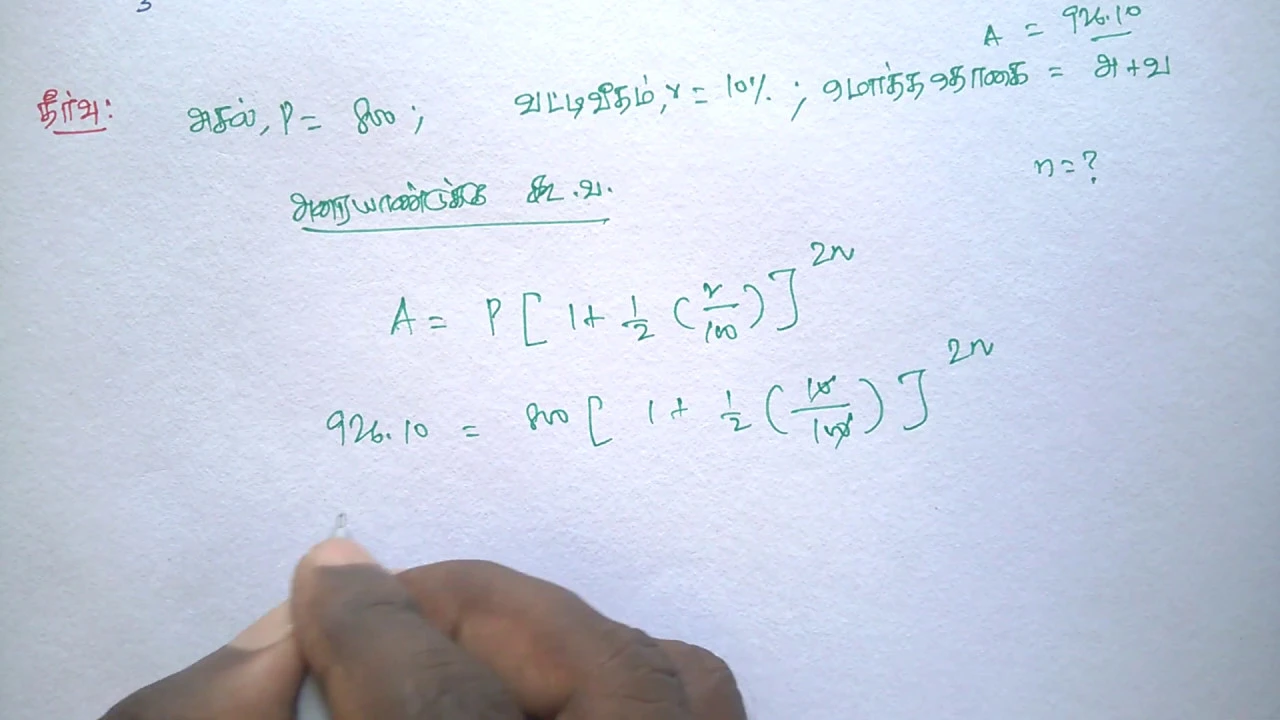 3
A = 926.10
தீர்வு:
அசல், P = 800 ; வட்டி வீதம், r = 10% ; மொத்த தொகை = அ + வ
n = ?
அரையாண்டுக்கு கூ.வ.
A = P [ 1 + 1/2 ( r/100 ) ]^2n
926.10 = 800 [ 1 + 1/2 ( 10/100 ) ]^2n